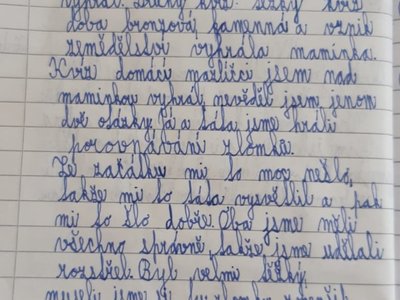 vyhrál. Druhý kvíz: těžký kvíz
doba bronzová, kamenná a vznik
zemědělství vyhrála maminka.
Kvíz domácí mazlíčci jsem nad
maminkou vyhrál, nevěděl jsem jenom
dvě otázky. Já a táta jsme hráli
porovnávání zlomků.
Ze začátku mi to moc nešlo,
takže mi to táta vysvětlil a pak
mi to šlo dobře. Oba jsme měli
všechno správně takže jsme udělali
rozstřel. Byl velmi těžký,
museli jsme